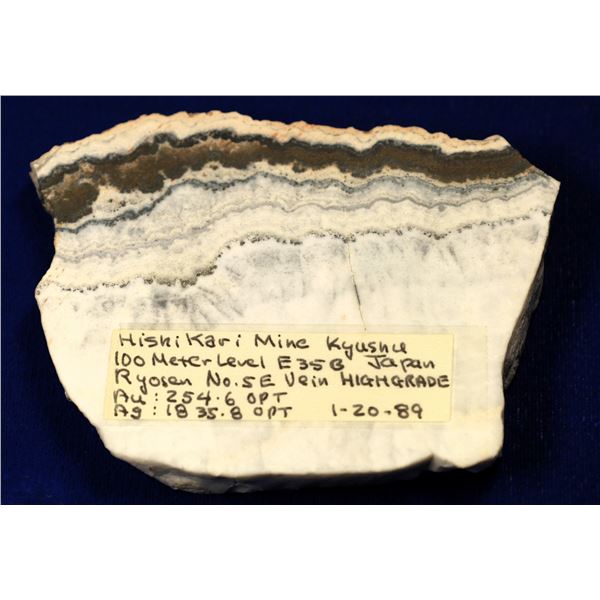 Hishikari Mine Kyushu
100 Meter Level E35B Japan
Ryosen No. 5E Vein HIGHGRADE
Au: 254.6 OPT
Ag: 1835.8 OPT 1-20-89